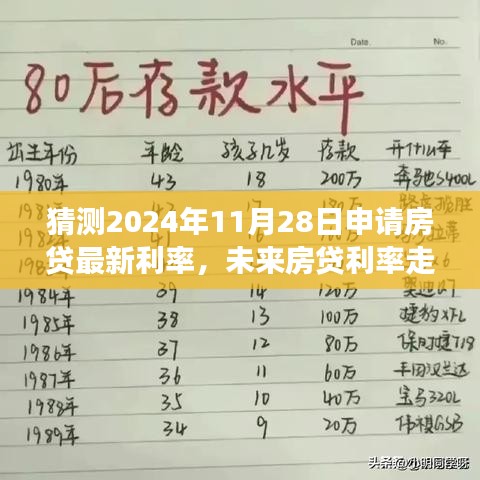 Date.
No.
80后存款水平
出生年份 年龄 孩子几岁 存款 开什么车
1980年 43 18 200万 奔驰S400L
猜测2024年11月28日申请房
贷最新利率，未来房贷利率走
39 14 120万
1985年 38 13 100万 捷豹XFL
1986年 37 12 80万 保时捷718
1987年 36 11 60万 丰田汉兰达
1988年 35 10 40万 宝马320L
1989年 34 9 20万 传祺GS8
头条@小明同学呀